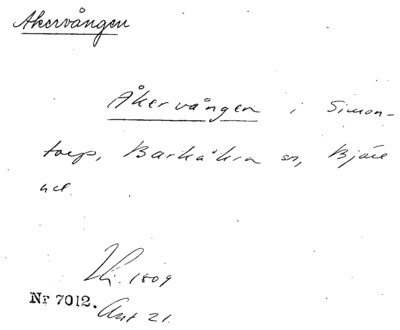 Åkervången
Åkervången i Simon-
torp, Barkåkra sn, Bjäre
hd.
1809
Nr 7012. Akt 21.